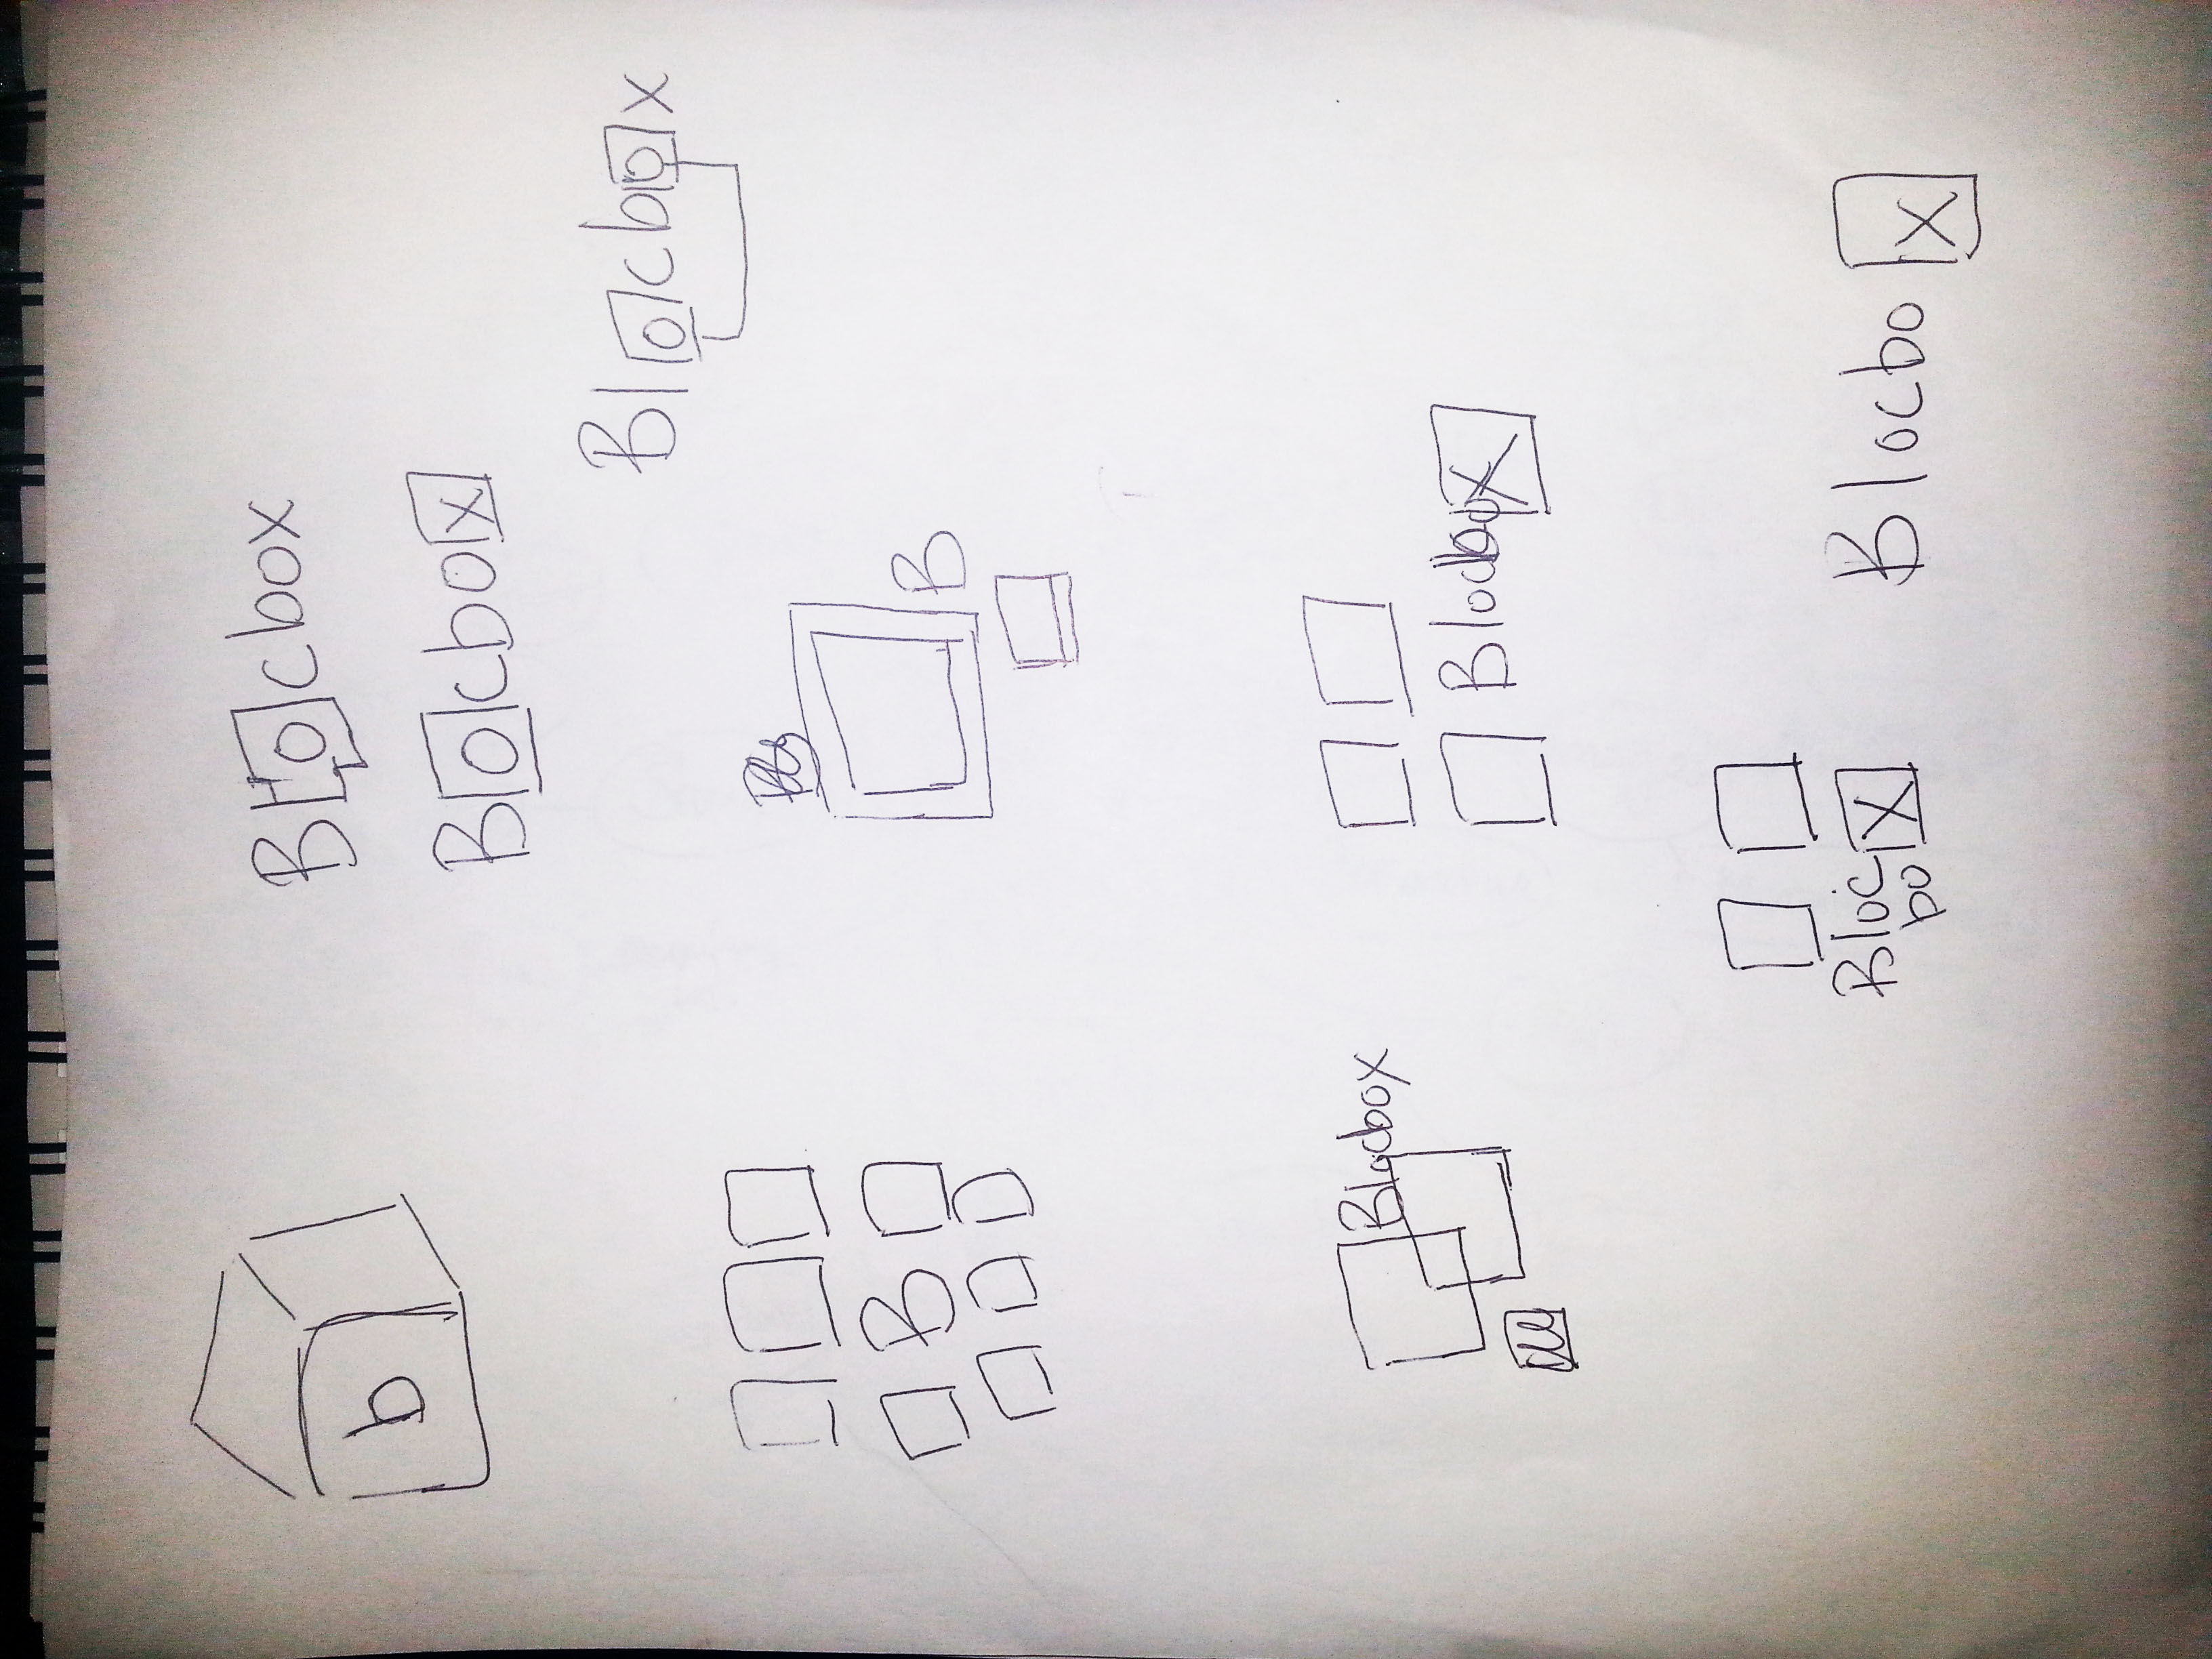 b
Blocbox
Blocbox
Blocbox
B
B
Blocbox
Blocbox
Bloc
box
Blocbox